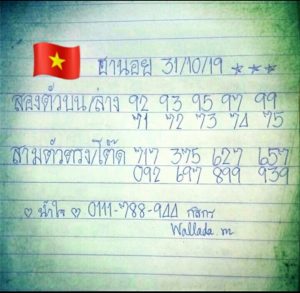 ฮานอย 31/10/19 ***
สองตัวบน/ล่าง 92 93 95 97 99
71 72 73 74 75
สามตัวตรง/โต๊ด 717 375 627 657
092 697 899 939
♡ น้ำใจ ♡ 0111-788-944 กสิกร
Wallada m